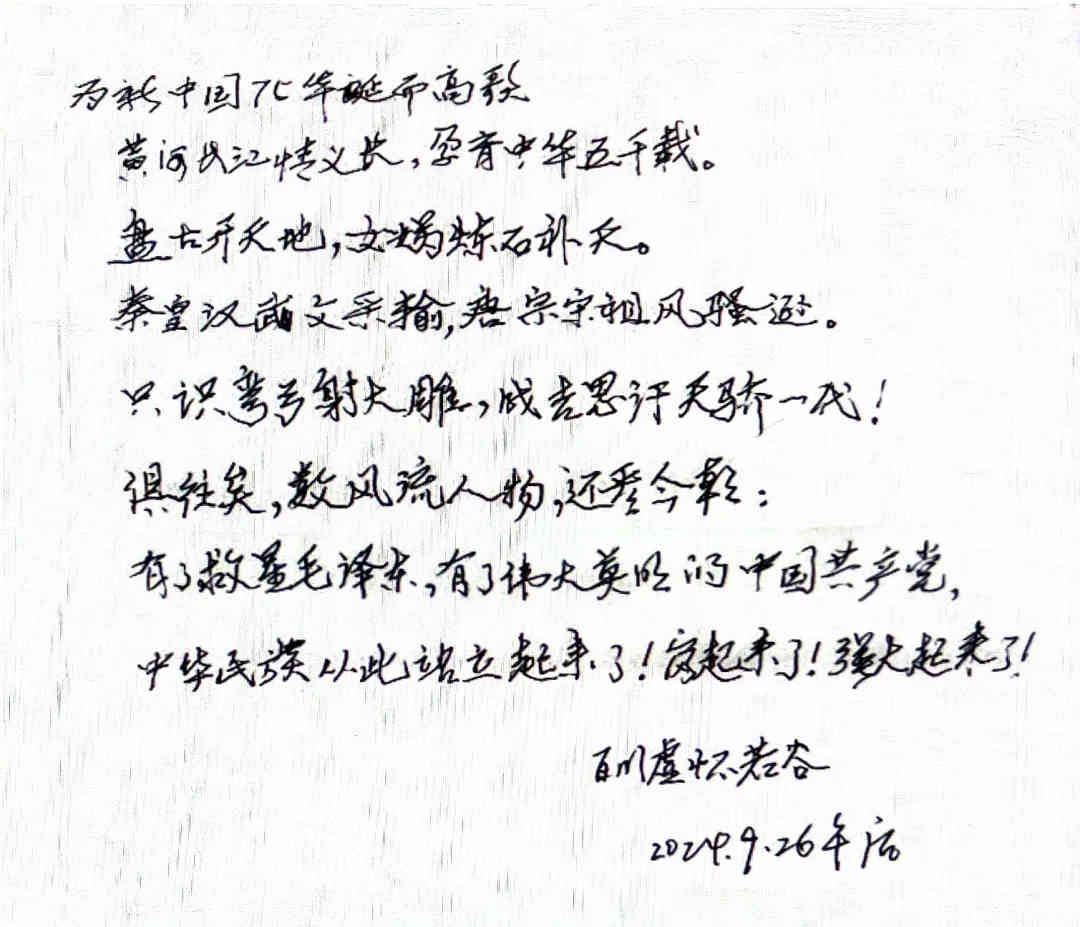 为新中国75华诞而高歌
黄河长江情义长,孕育中华五千载。
盘古开天地,女娲炼石补天。
秦皇汉武文采输,唐宗宋祖风骚逊。
只识弯弓射大雕,成吉思汗天骄一代!
俱往矣,数风流人物,还看今朝:
有了救星毛泽东,有了伟大英明的中国共产党,
中华民族从此站立起来了!富起来了!强大起来了!
百川虚怀若谷
2024.9.26午后